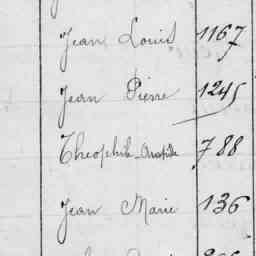 Jean Louis 1167
Jean Pierre 1245
Théophile 788
Jean Marie 136